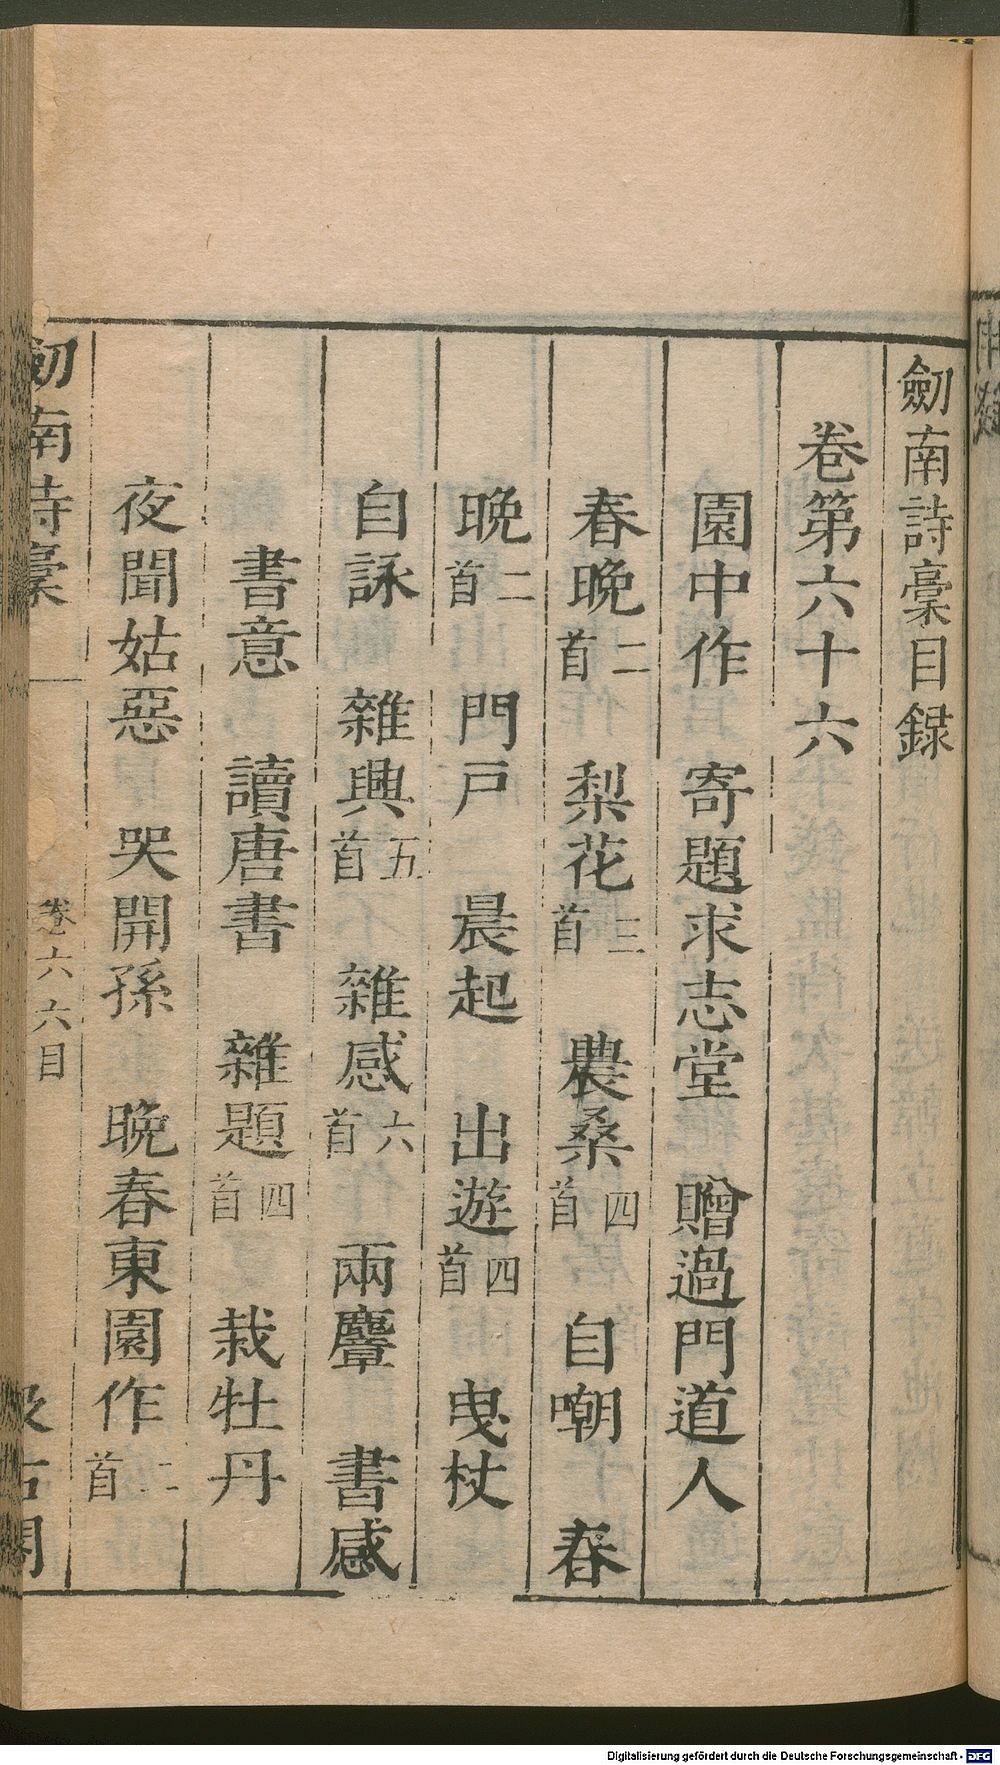 劒南詩稾目録
卷第六十六
園中作　寄題求志堂　贈過門道人
春晚二首　梨花三首　農桑四首　自嘲　春
晚二首　門戶　晨起　出遊四首　曳杖
自詠　雜興五首　雜感六首　兩麞　書感
書意　讀唐書　雜題四首　栽牡丹
夜聞姑惡　哭開孫　晚春東園作二首
劒南詩稾　卷六六目　汲古閣
Digitalisierung gefördert durch die Deutsche Forschungsgemeinschaft - DFG